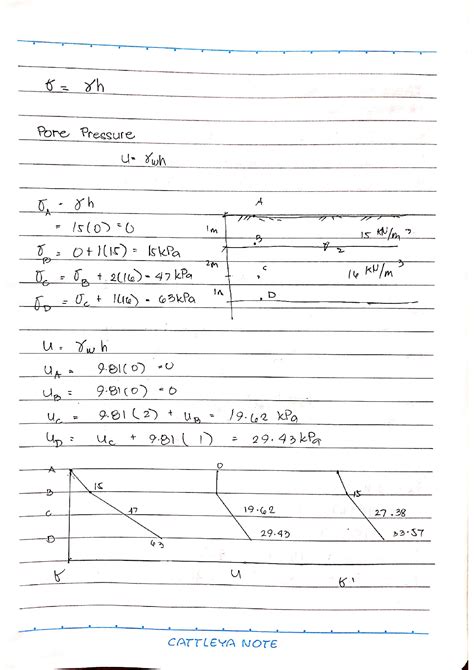 σ = γh
Pore Pressure
u = γwh
σA = γh
= 15(0) = 0
σB = 0+1(15) = 15kPa
σC = σB + 2(16) = 47 kPa
σD = σC + 1(16) = 63kPa
A
1m
B
15 KN/m³
2m
C
16 KN/m³
1m
D
u = γw h
uA = 9.81(0) = 0
uB = 9.81(0) = 0
uC = 9.81(2) + uB = 19.62 kPa
uD = uC + 9.81(1) = 29.43kPa
A
0
B
15
15
C
47
19.62
27.38
D
63
29.43
33.57
σ
u
σ'
CATTLEYA NOTE